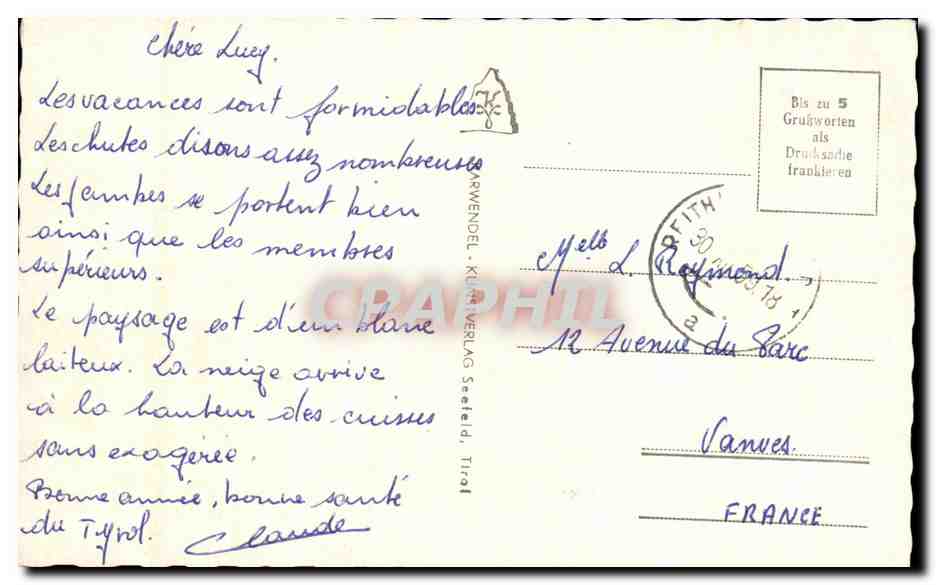 Chére Lucy.
Les vacances sont formidables
Les chutes disons assez nombreuses
Les jambes se portent bien
ainsi que les membres
supérieurs.
Le paysage est d'un blanc
laiteux. La neige arrive
à la hauteur des cuisses
sans exagérée.
Bonne année, bonne santé
du Tyrol. Claude
KARWENDEL - KUNSTVERLAG Seefeld, Tirol
Bis zu 5
Grußworten
als
Drucksache
frankieren
REITH
30
18
a
Melle L. Raymond.
12 Avenue du Parc
Vanves.
FRANCE
CPAPHIL